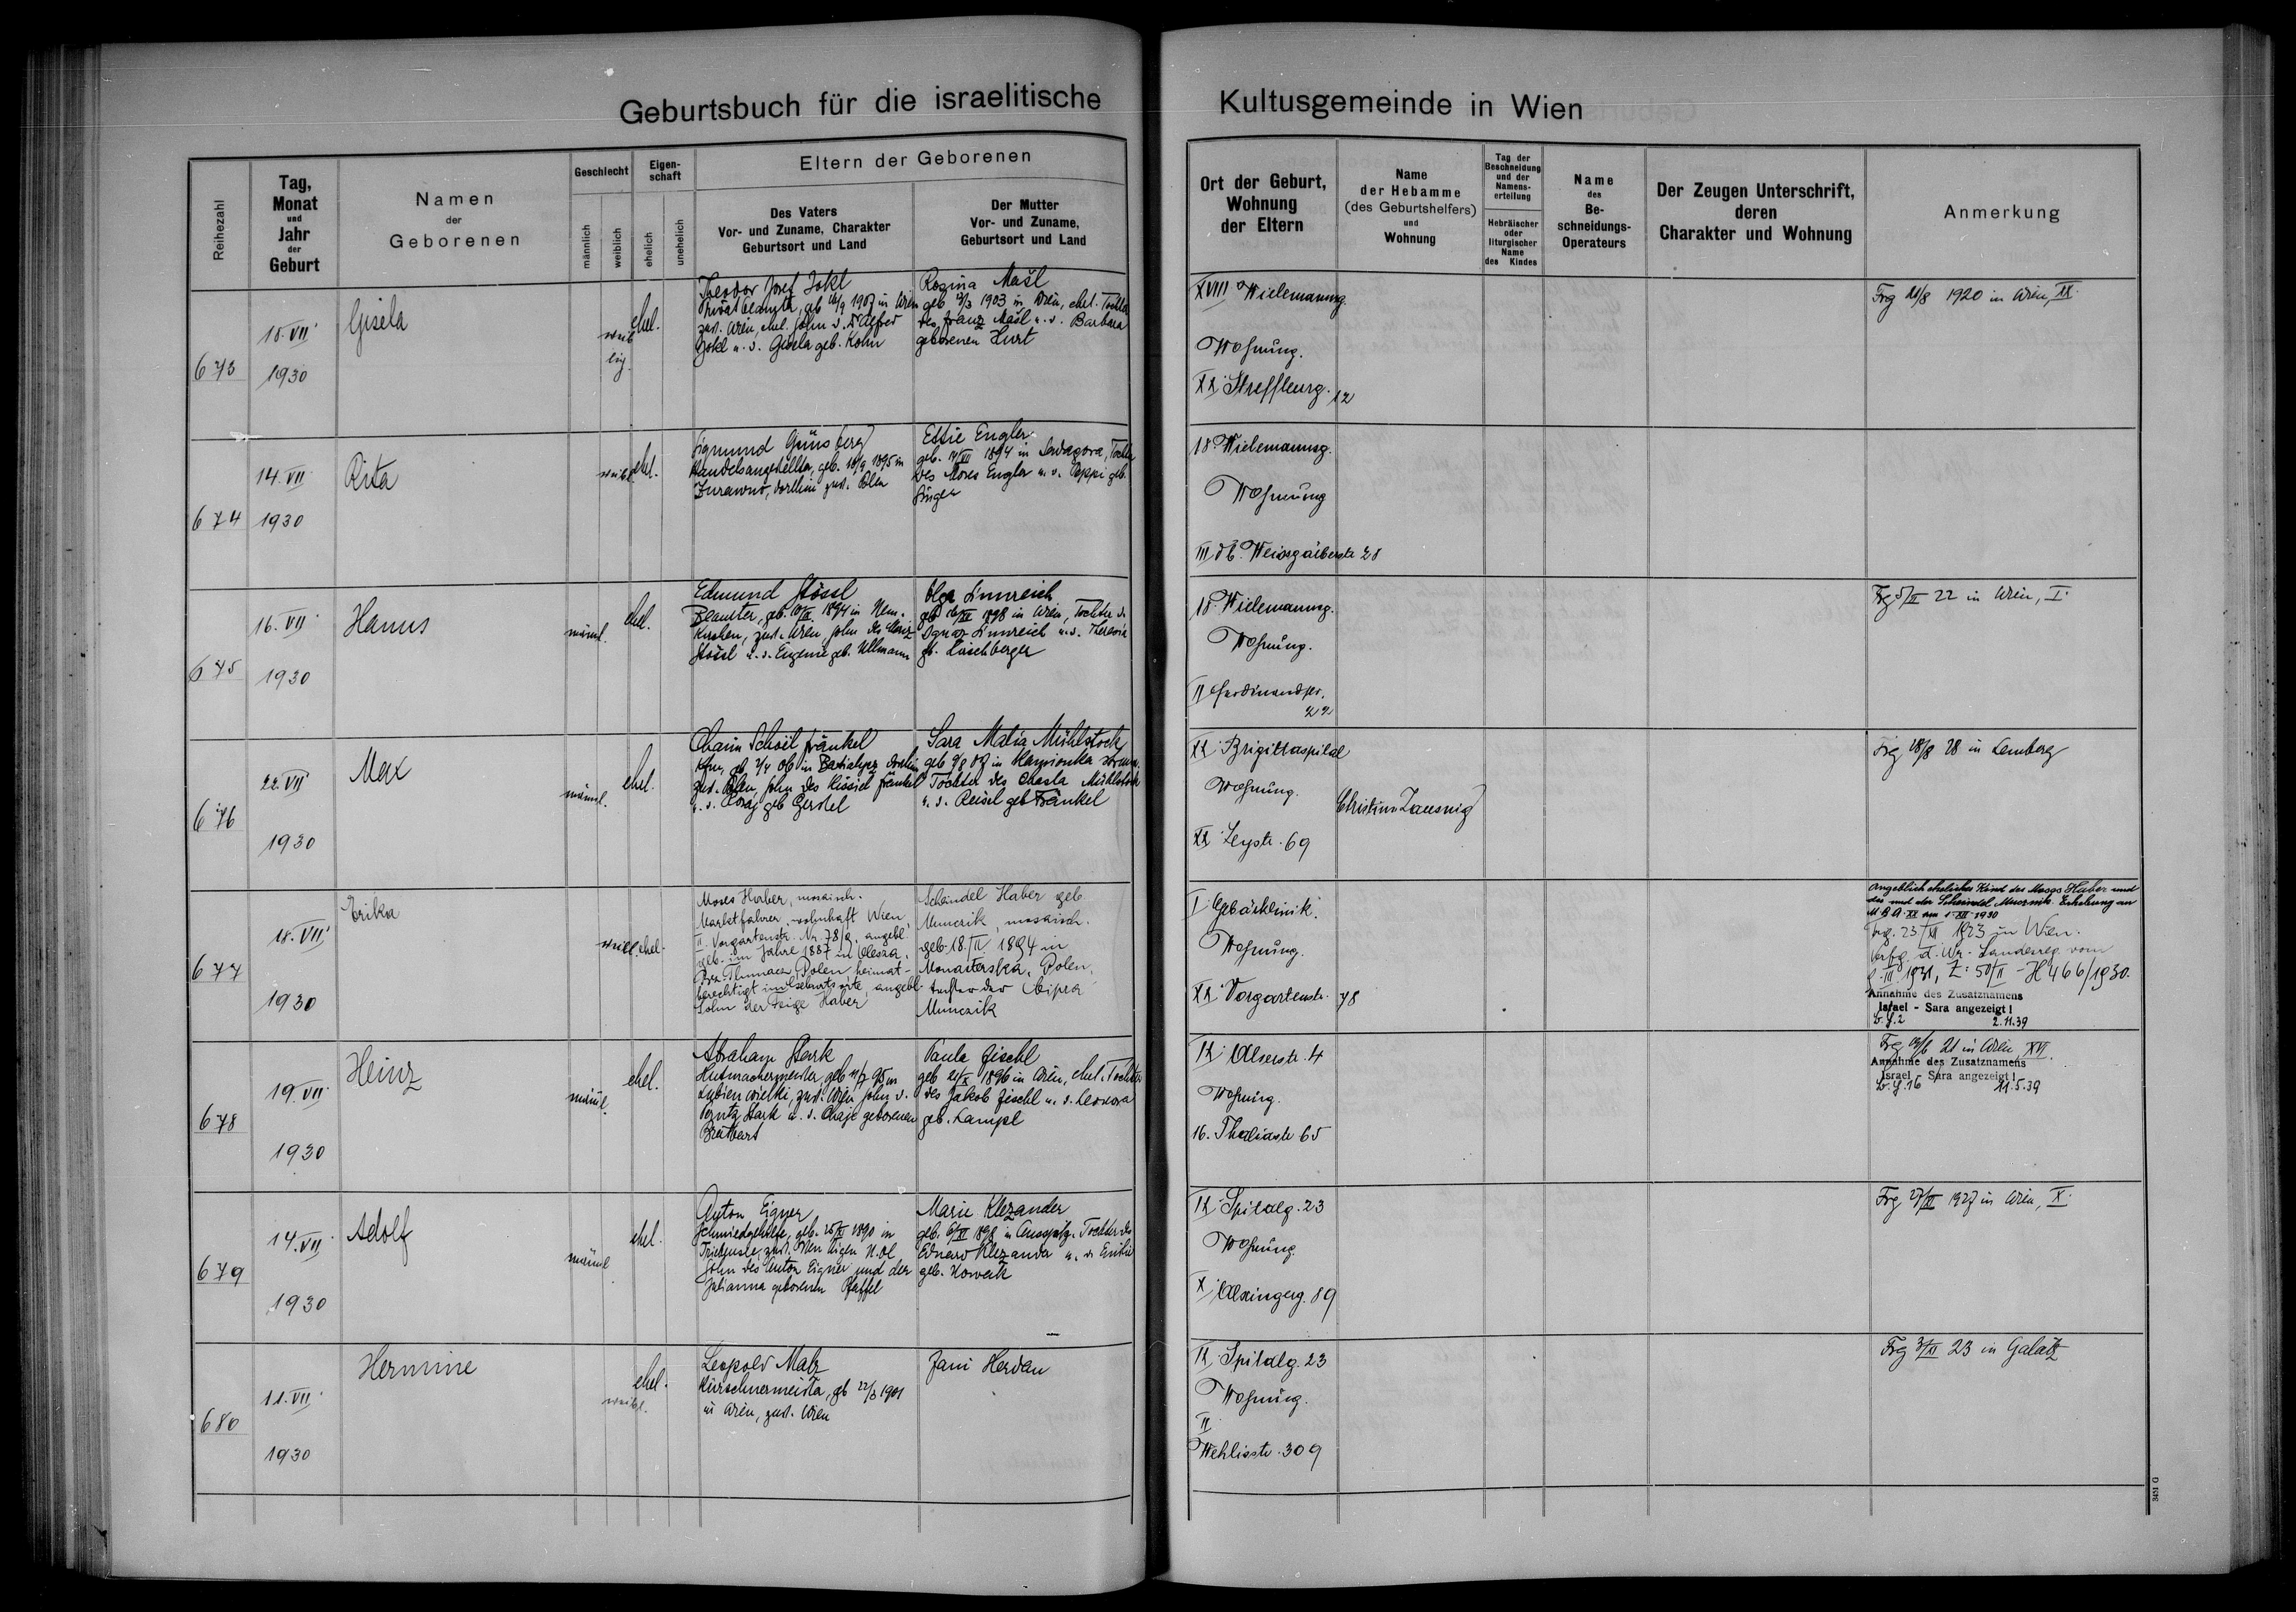 Geburtsbuch für die israelitische
Kultusgemeinde in Wien
Reihezahl
Tag,
Monat
und
Jahr
der
Geburt
Namen
der
Geborenen
Geschlecht
männlich
weiblich
Eigen-
schaft
ehelich
unehelich
Eltern der Geborenen
Des Vaters
Vor- und Zuname, Charakter
Geburtsort und Land
Der Mutter
Vor- und Zuname,
Geburtsort und Land
Ort der Geburt,
Wohnung
der Eltern
Name
der Hebamme
(des Geburtshelfers)
und
Wohnung
Tag der
Beschneidung
und der
Namens-
erteilung
Hebräischer
oder
liturgischer
Name
des Kindes
Name
des
Be-
schneidungs-
Operateurs
Der Zeugen Unterschrift,
deren
Charakter und Wohnung
Anmerkung
673
18. VII
1930
Gisela
weib
ehel.
Theodor Josef Jokl
Privatbeamter, geb. 16/9 1907 in Wien
zust. Wien, ehel. Sohn d. Dr Alfred
Jokl u. d. Gisela geb. Kohn
Regina Mašl
1903 in Wien, ehel. Tochter
des Franz Mašl u. d. Barbara
geborenen Hurt
XVIII Wielemansg.
Wohnung.
XX Streffleurg. 12
Trg 1920 in Wien, IX.
674
14. VII
1930
Rita
weibl.
ehel.
Sigmund Günsberg
Handelsangestellter, geb. 18/9 1895 in
Zurawno, dorthin zust. Polen
Ettie Engler
geb. 1894 in Sadagora, Tochter
des Moses Engler u. d. Peppi geb.
Singer
18. Wielemansg.
Wohnung
III ob. Weissgärberstr 28
675
16. VII
1930
Hanns
männl.
ehel.
Edmund Stössl
Beamter, geb. 1894 in Neun-
kirchen, zust. Wien, Sohn des Moriz
Stössl u. d. Eugenie geb. Ullmann
Olga Sinnreich
1898 in Wien, Tochter d.
Ignaz Sinnreich u. d. Theresia
gb. Laschberger
18. Wielemansg.
Wohnung.
II Ferdinandstr.
22
Trg 5/II 22 in Wien, I.
676
22. VII
1930
Max
männl.
ehel.
Chaim Scheil Fränkel
zust. Polen, Sohn des Kissiel Fränkel
u. d. Rosa, geb Gerstel
Sara Malia Mühlstock
Tochter des Chaskl Mühlstock
u. d. Reisel geb Fränkel
XX Brigittaspital
Wohnung.
XX Leystr. 69
Christine Zausnig
Trg 28/8 28 in Lemberg
677
18. VII
1930
Erika
weibl.
ehel.
Moses Haber, mosaisch.
Marktfahrer, wohnhaft Wien,
II. Vorgartenstr. Nr. 78/9, angebl.
geb. im Jahre 1887 in Olesza,
Bez. Tlumacz Polen, heimat-
berechtigt im Geburtsorte, angebl.
Sohn der Feige Haber
Scheindel Haber geb
Munczik, mosaisch.
geb. 18./II 1894 in
Monasterska, Polen,
Tochter der Cipra
Munczik
I Gebärklinik.
Wohnung.
XX Vorgartenstr. 78
Angeblich eheliches Kind des Moses Haber und
der Scheindel Munczik. Erhebung an
M B A XX am 1. XII 1930
Trg. 23/XI 1923 in Wien.
Verfg. d. Wr. Landesreg. vom
III 1931, Z: 50/II - H 466/1930.
Annahme des Zusatznamens
Israel - Sara angezeigt!
2.11.39
678
19. VII
1930
Heinz
männl.
ehel.
Abraham Stark
Hutmachermeister, geb 95 in
Lubien wielki, zust. Wien, Sohn d.
Stark u. d. Chaje geborenen
Breitbart
Paula Fischl
geb 21/X 1896 in Wien, ehel. Tochter
des Jakob Fischl u. d. Leonora
geb. Lampl
IX Alserstr. 4
Wohnung.
16. Thaliastr 65
Trg 21 in Wien, XVI.
Annahme des Zusatznamens
Israel - Sara angezeigt!
11.5.39
679
14. VII
1930
Adolf
männl
ehel.
Anton Eigner
Schmiedgehilfe, geb. 1890 in
Sohn des Anton Eigner und der
Julianna geborenen Pfaffel
Marie Klezander
geb. 6/XII 1898 in Auspitz, Tochter des
Eduard Klezander u. d. Emilie
geb. Nowak
IX Spitalg. 23
Wohnung.
X Alxingerg. 89
Trg 1927 in Wien, X.
680
11. VII
1930
Hermine
weibl.
ehel.
Leopold Malz
Kürschnermeister, gb 22/3 1901
in Wien, zust. Wien
Fani Herdan
IX Spitalg. 23
Wohnung.
II
Wehlistr. 309
Trg 3/XI 23 in Galatz
3451 G